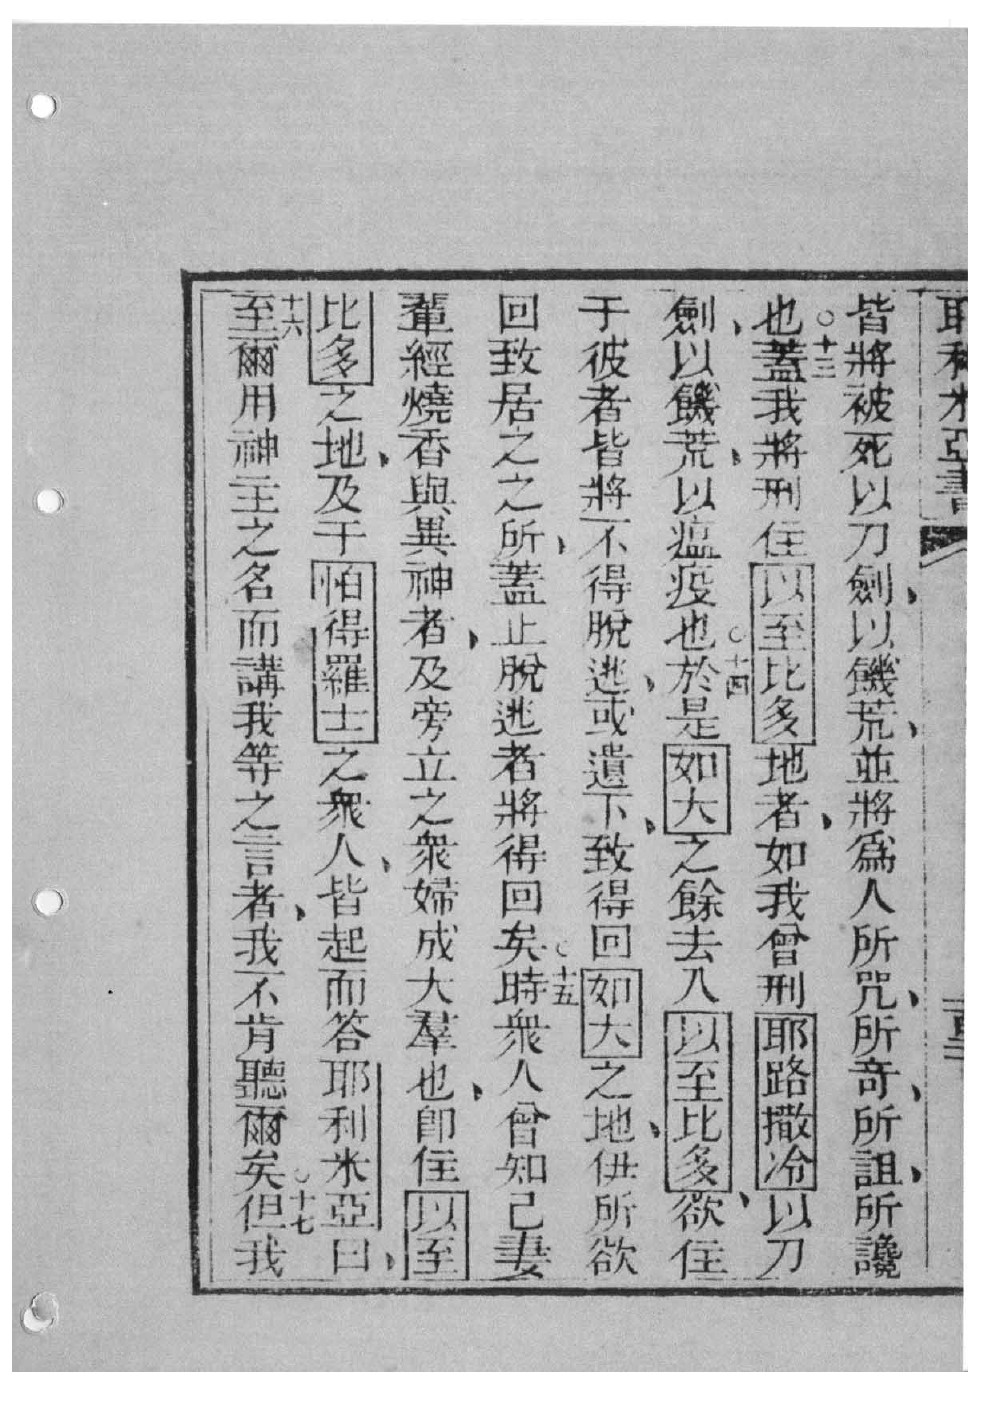 耶利米亞書
皆將被死以刀劍、以饑荒、並將爲人所咒、所奇、所詛、所讒
也○十三蓋我將刑住以至比多地者、如我曾刑耶路撒冷以刀
劍、以饑荒、以瘟疫也○十四於是如大之餘去入以至比多、欲住
于彼者皆將不得脫逃、或遺下、致得回如大之地、伊所欲
回致居之之所、蓋止脫逃者將得回矣○十五時衆人曾知己妻
輩經燒香與異神者、及旁立之衆婦成大羣也、卽住以至
比多之地、及于怕得羅士之衆人、皆起而答耶利米亞曰、
十六至爾用神主之名而講我等之言者、我不肯聽爾矣○十七但我